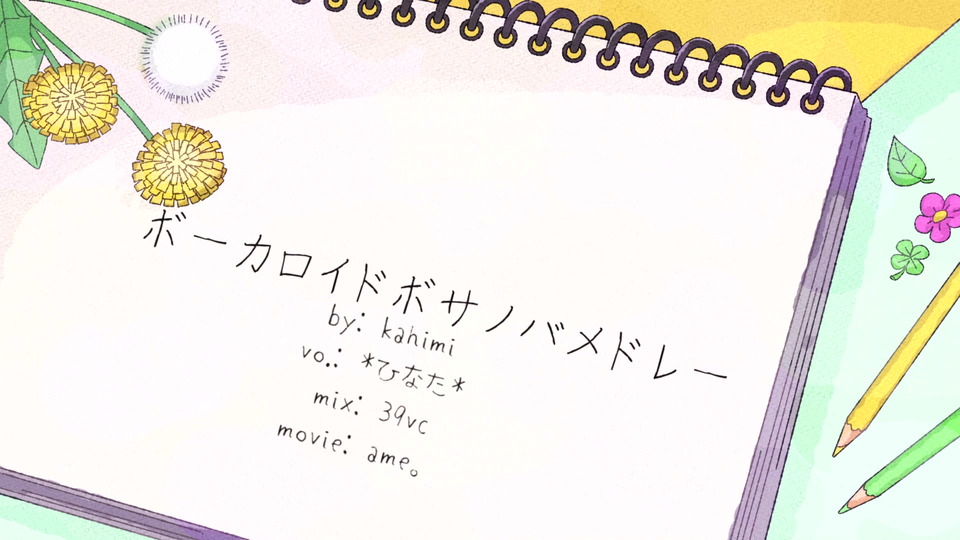 ボーカロイドボサノバメドレー
by: kahimi
vo.: *ひなた*
mix: 39vc
movie: ame。